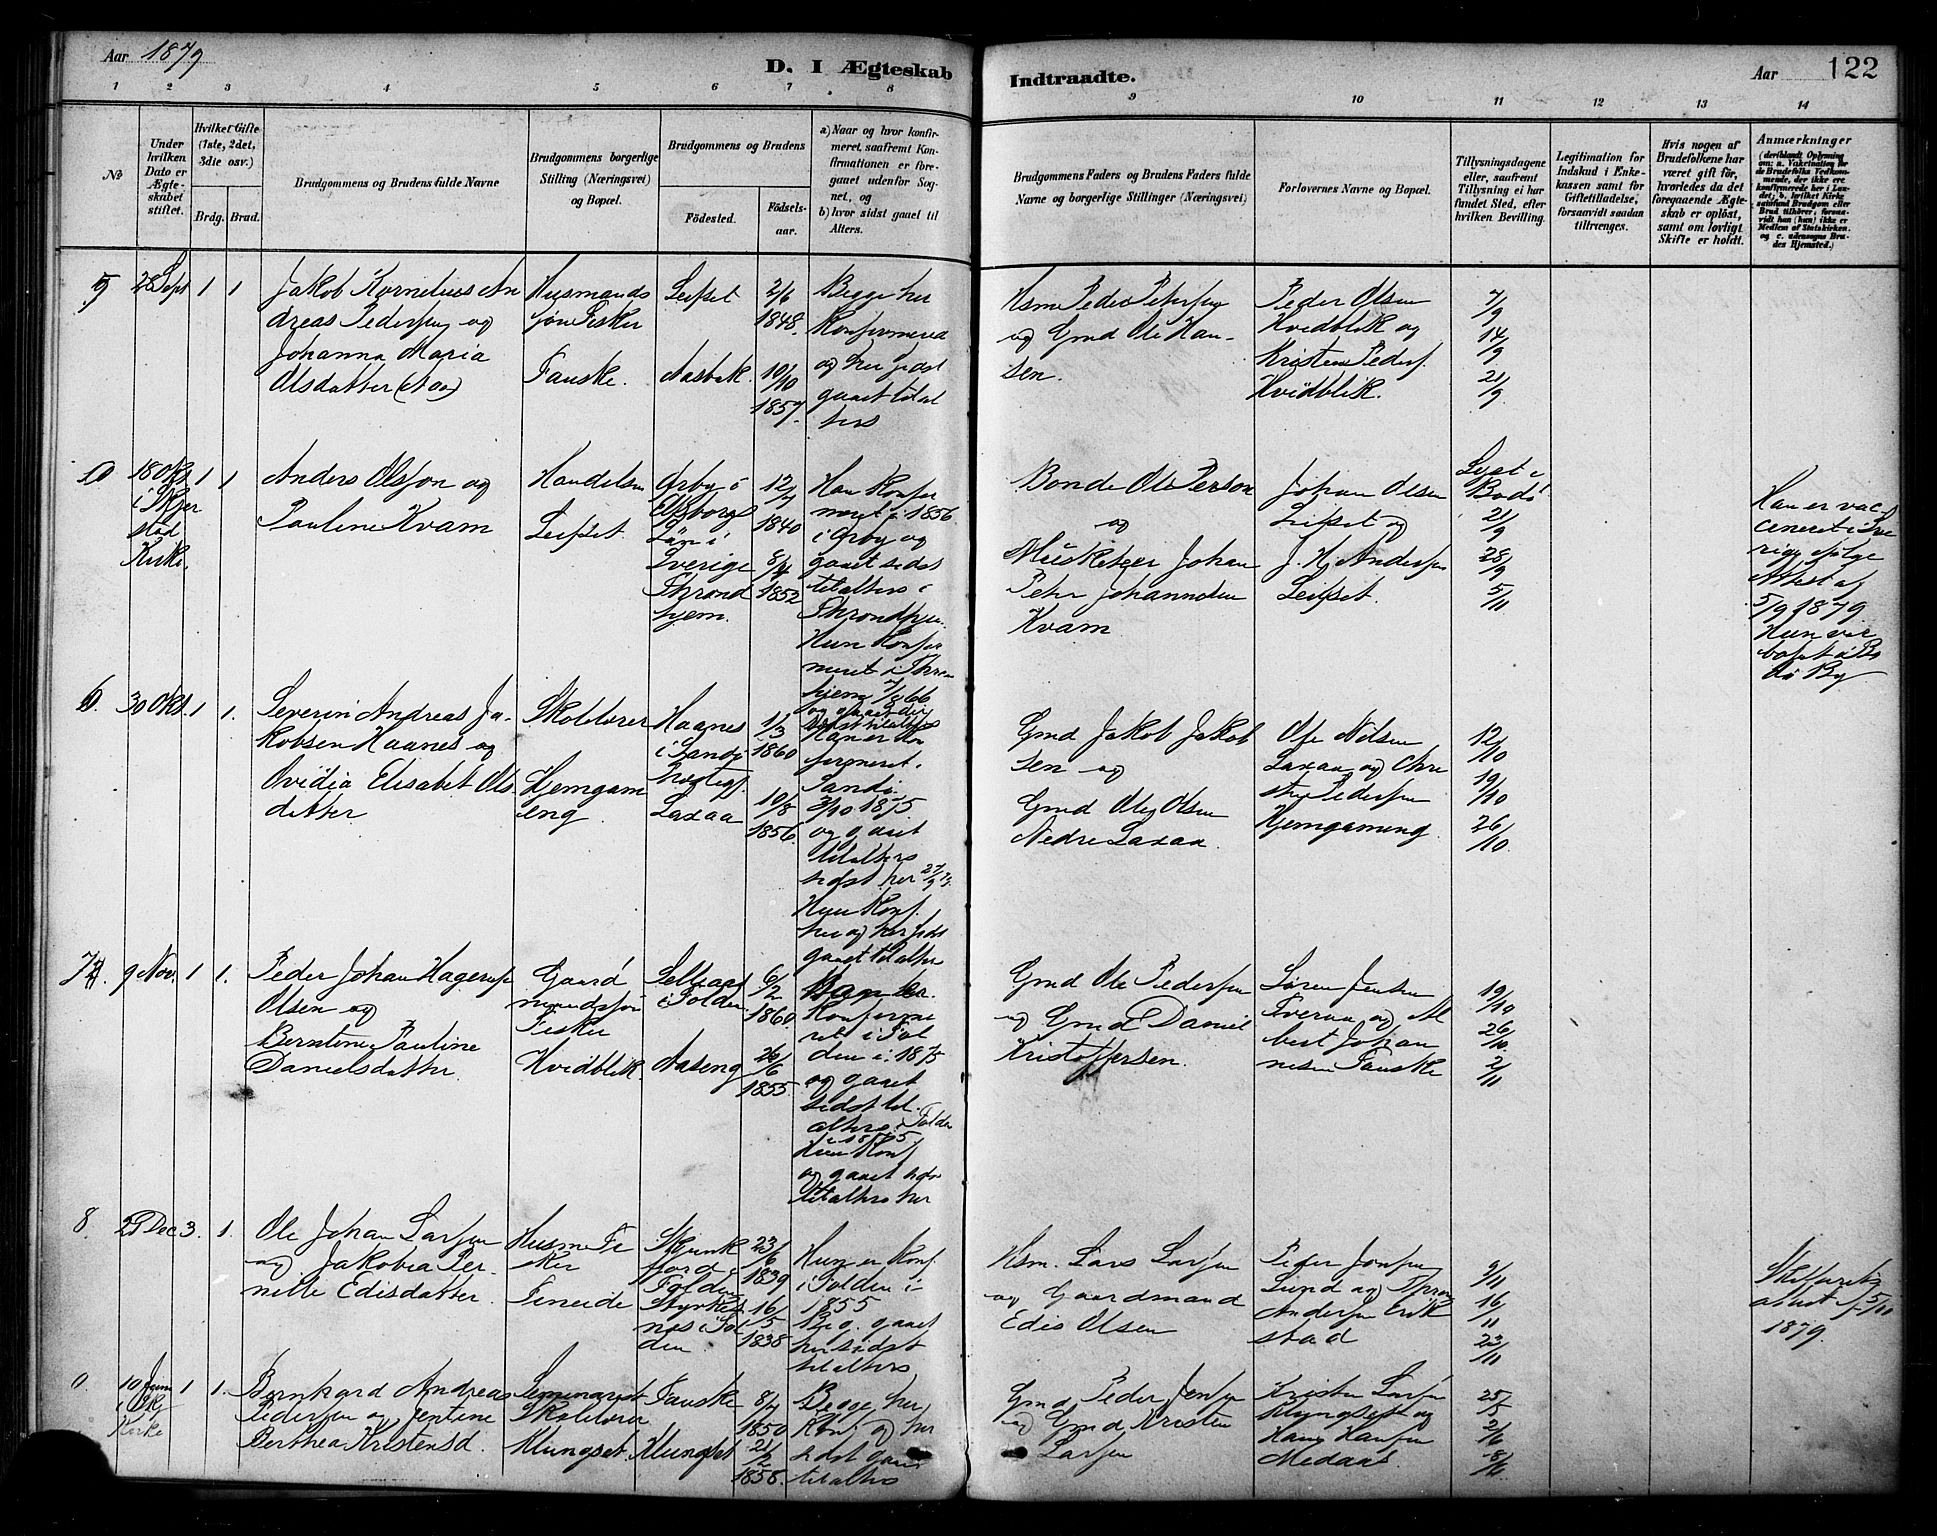 Aar 1879
D. I Ægteskab
Indtraadte.
Aar
122
1 2 3 4 5 6 7 8 9 10 11 12 13 14
No
Under
hvilken
Dato er
Ægte-
skabet
stiftet.
Hvilket Gifte
(1ste, 2det,
3die osv.)
Brdg. Brud.
Brudgommens og Brudens fulde Navne
Brudgommens borgerlige
Stilling (Næringsvei)
og Bopæl.
Brudgommens og Brudens
Födested.
Födsels-
aar.
a) Naar og hvor konfir-
meret, saafremt Kon-
firmationen er fore-
gaaet udenfor Sog-
net, og
b) hvor sidst gaaet til
Alters.
Brudgommens Faders og Brudens Faders fulde
Navne og borgerlige Stillinger (Næringsvei)
Forlovernes Navne og Bopæl.
Tillysningsdagene
eller, saafremt
Tillysning ei har
fundet Sted, efter
hvilken Bevilling.
Legitimation for
Indskud i Enke-
kassen samt for
Giftetilladelse,
forsaavidt saadan
tiltrænges.
Hvis nogen af
Brudefolkene har
været gift før,
hvorledes da det
foregaaende Ægte-
skab er opløst,
samt om lovligt
Skifte er holdt.
Anmærkninger
28 Sept 1 1
Jakob Kornelius An
dreas Pedersen og
Johanna Maria
Olsdatter
Husmands
søn Fisker
Fauske.
Leifset
Aasbak
2/6
1848.
10/10
1857.
Begge her
Konfirmered
og her sidst
gaaet til al
ters
Hsm Peder Petersen
og Gmd Ole Han-
sen.
Peder Olsen
Kvidblik og
Kristen Peders.
Hvidblik.
7/9
14/9
21/9
18 Okt 1 1
i Skjer
stad
Kirke.
Anders Olsson og
Pauline Kvam
Handelsm
Leifset.
Örby i
Elfsborgs
Län i
Sverige
Thrond
hjem.
12/7
1840
8/4
1852
Han Konfir
meret i 1856
i Örby og
gaaet sidst
til alters i
Throndhjem.
Hun Konfir
meret i Thron
hjem
Bonde Ole Person
og
Musketeer Johan
Peter Johannesen
Kvam
Johan Olsen
Leifset og
J. H. Andersen
Leifset.
Lyst i
Bodö
21/9
28/9
5/11
Han er vac
ceneret i Sve
rige ifølge
Attest af
5/9 1879.
Hun er
bosat i Bo
dö By
6. 30 Okt. 1 1.
Severin Andreas Ja-
kobsen Haanes og
Ovidia Elisabet Ols
datter
Skolelærer
Hjemgam
eng
Haanes
i Sandö
Præstegj.
Laxaa
1/3
1860
19/8
1856.
Han er Kon
firmeret i
Sandö
3/10 1875
og gaaet
til alters
sidst her
Hun Konf.
her og her sidst
gaaet til alter
Gmd Jakob Jakob
sen og
Gmd Ole Olsen
Nedre Laxaa.
Ole Nilsen
Laxaa og Chri
sten Pedersen
Hjemgameng.
12/10
19/10
26/10.
7. 9 Nov. 1 1.
Peder Johan Hagerup
Olsen og
Berntine Pauline
Danielsdatter.
Gaard
mandssøn
Fisker
Hvidblik.
i Folden
Aaseng
6/2
1860.
26/6
1855.
Han er
Konfirme
ret i Fol
den i 1875
og gaaet
sidst til
alters i Folden
Hun Konf
og gaaet
til alters her
Gmd Ole Pedersen
og Gmd Daniel
Kristoffersen.
Sören Jensen
Tveraa og Al
bert Johan
nesen Fauske
19/10
26/10.
2/11
8. 29 Dec 3. 1.
Ole Johan Larsen
og Jakobea Per
nelle Edisdatter.
Husm Fi
sker
Fineide
fjord
Folden
Styrkes
nes i Fol
den
23/6
1839
16/5
1838
Hun er Konf.
i Folden i
1855
Beg. gaaet
her sidst
til alters
Hsm. Lars Larsen
og Gaardmand
Edis Olsen
Peder Jonsen
Lund og
Andersen Erik
stad
9/11
16/11
23/11
Skifteretts
attest 5/11
1879.
Kirke 1 1.
Bernhard Andreas
Pedersen og Jentine
Berthea Kristensd.
Seminarist
Skolelærer
Klungset.
Fauske
Klungset
8/7
1850
21/2
1858.
Begge her
Konf. og her
sidst gaaet
til alters
Gmd Peder Jensen
og Gmd Kristen
Larsen
Kristen Larsen
Klungset og
Hans Hansen
Medaas.
25/5
2/6
8/6